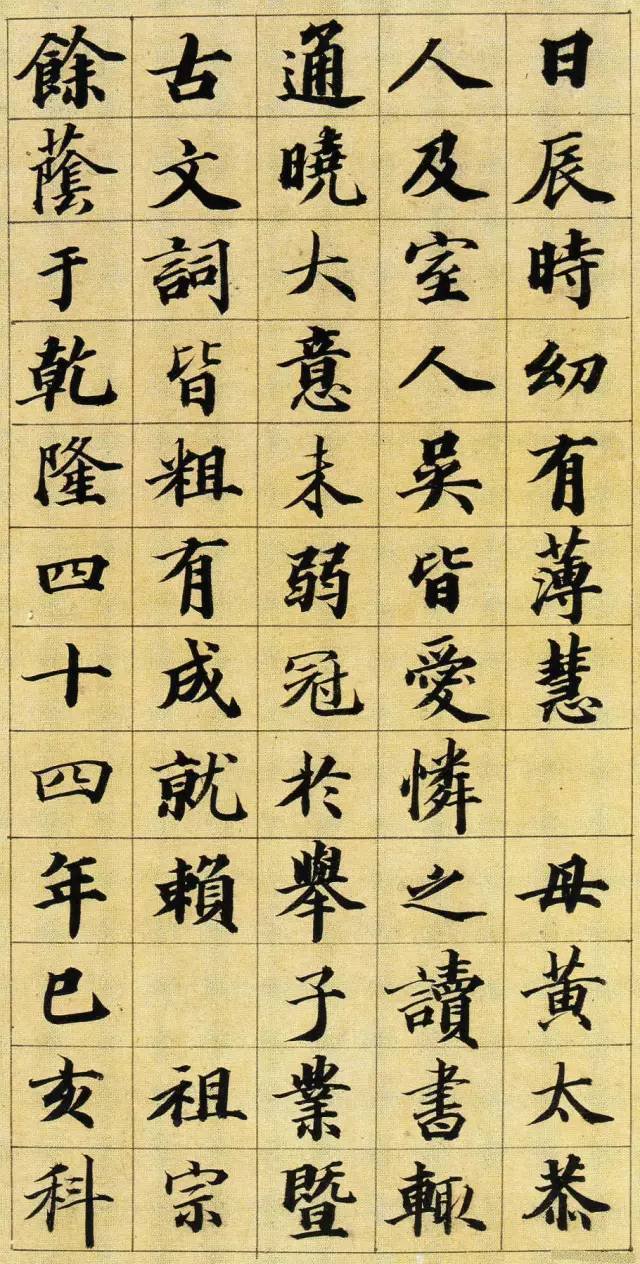 日辰時幼有薄慧 母黃太恭
人及室人吳皆愛憐之讀書輙
通曉大意未弱冠於舉子業暨
古文詞皆粗有成就賴 祖宗
餘蔭于乾隆四十四年己亥科